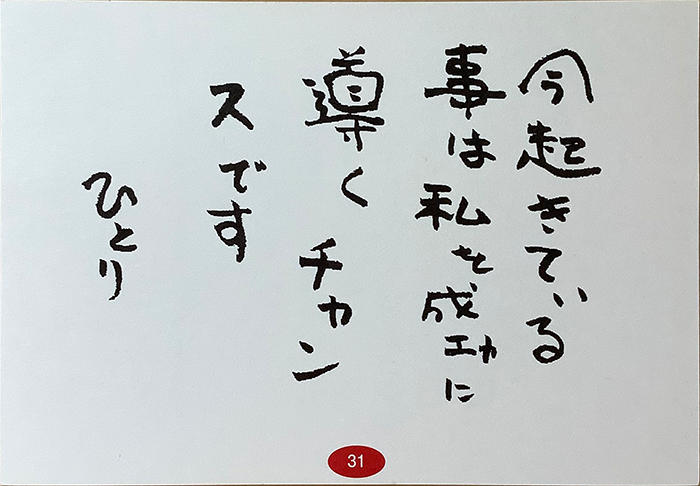 今起きている
事は私を成功に
導くチャン
スです
ひとり
31